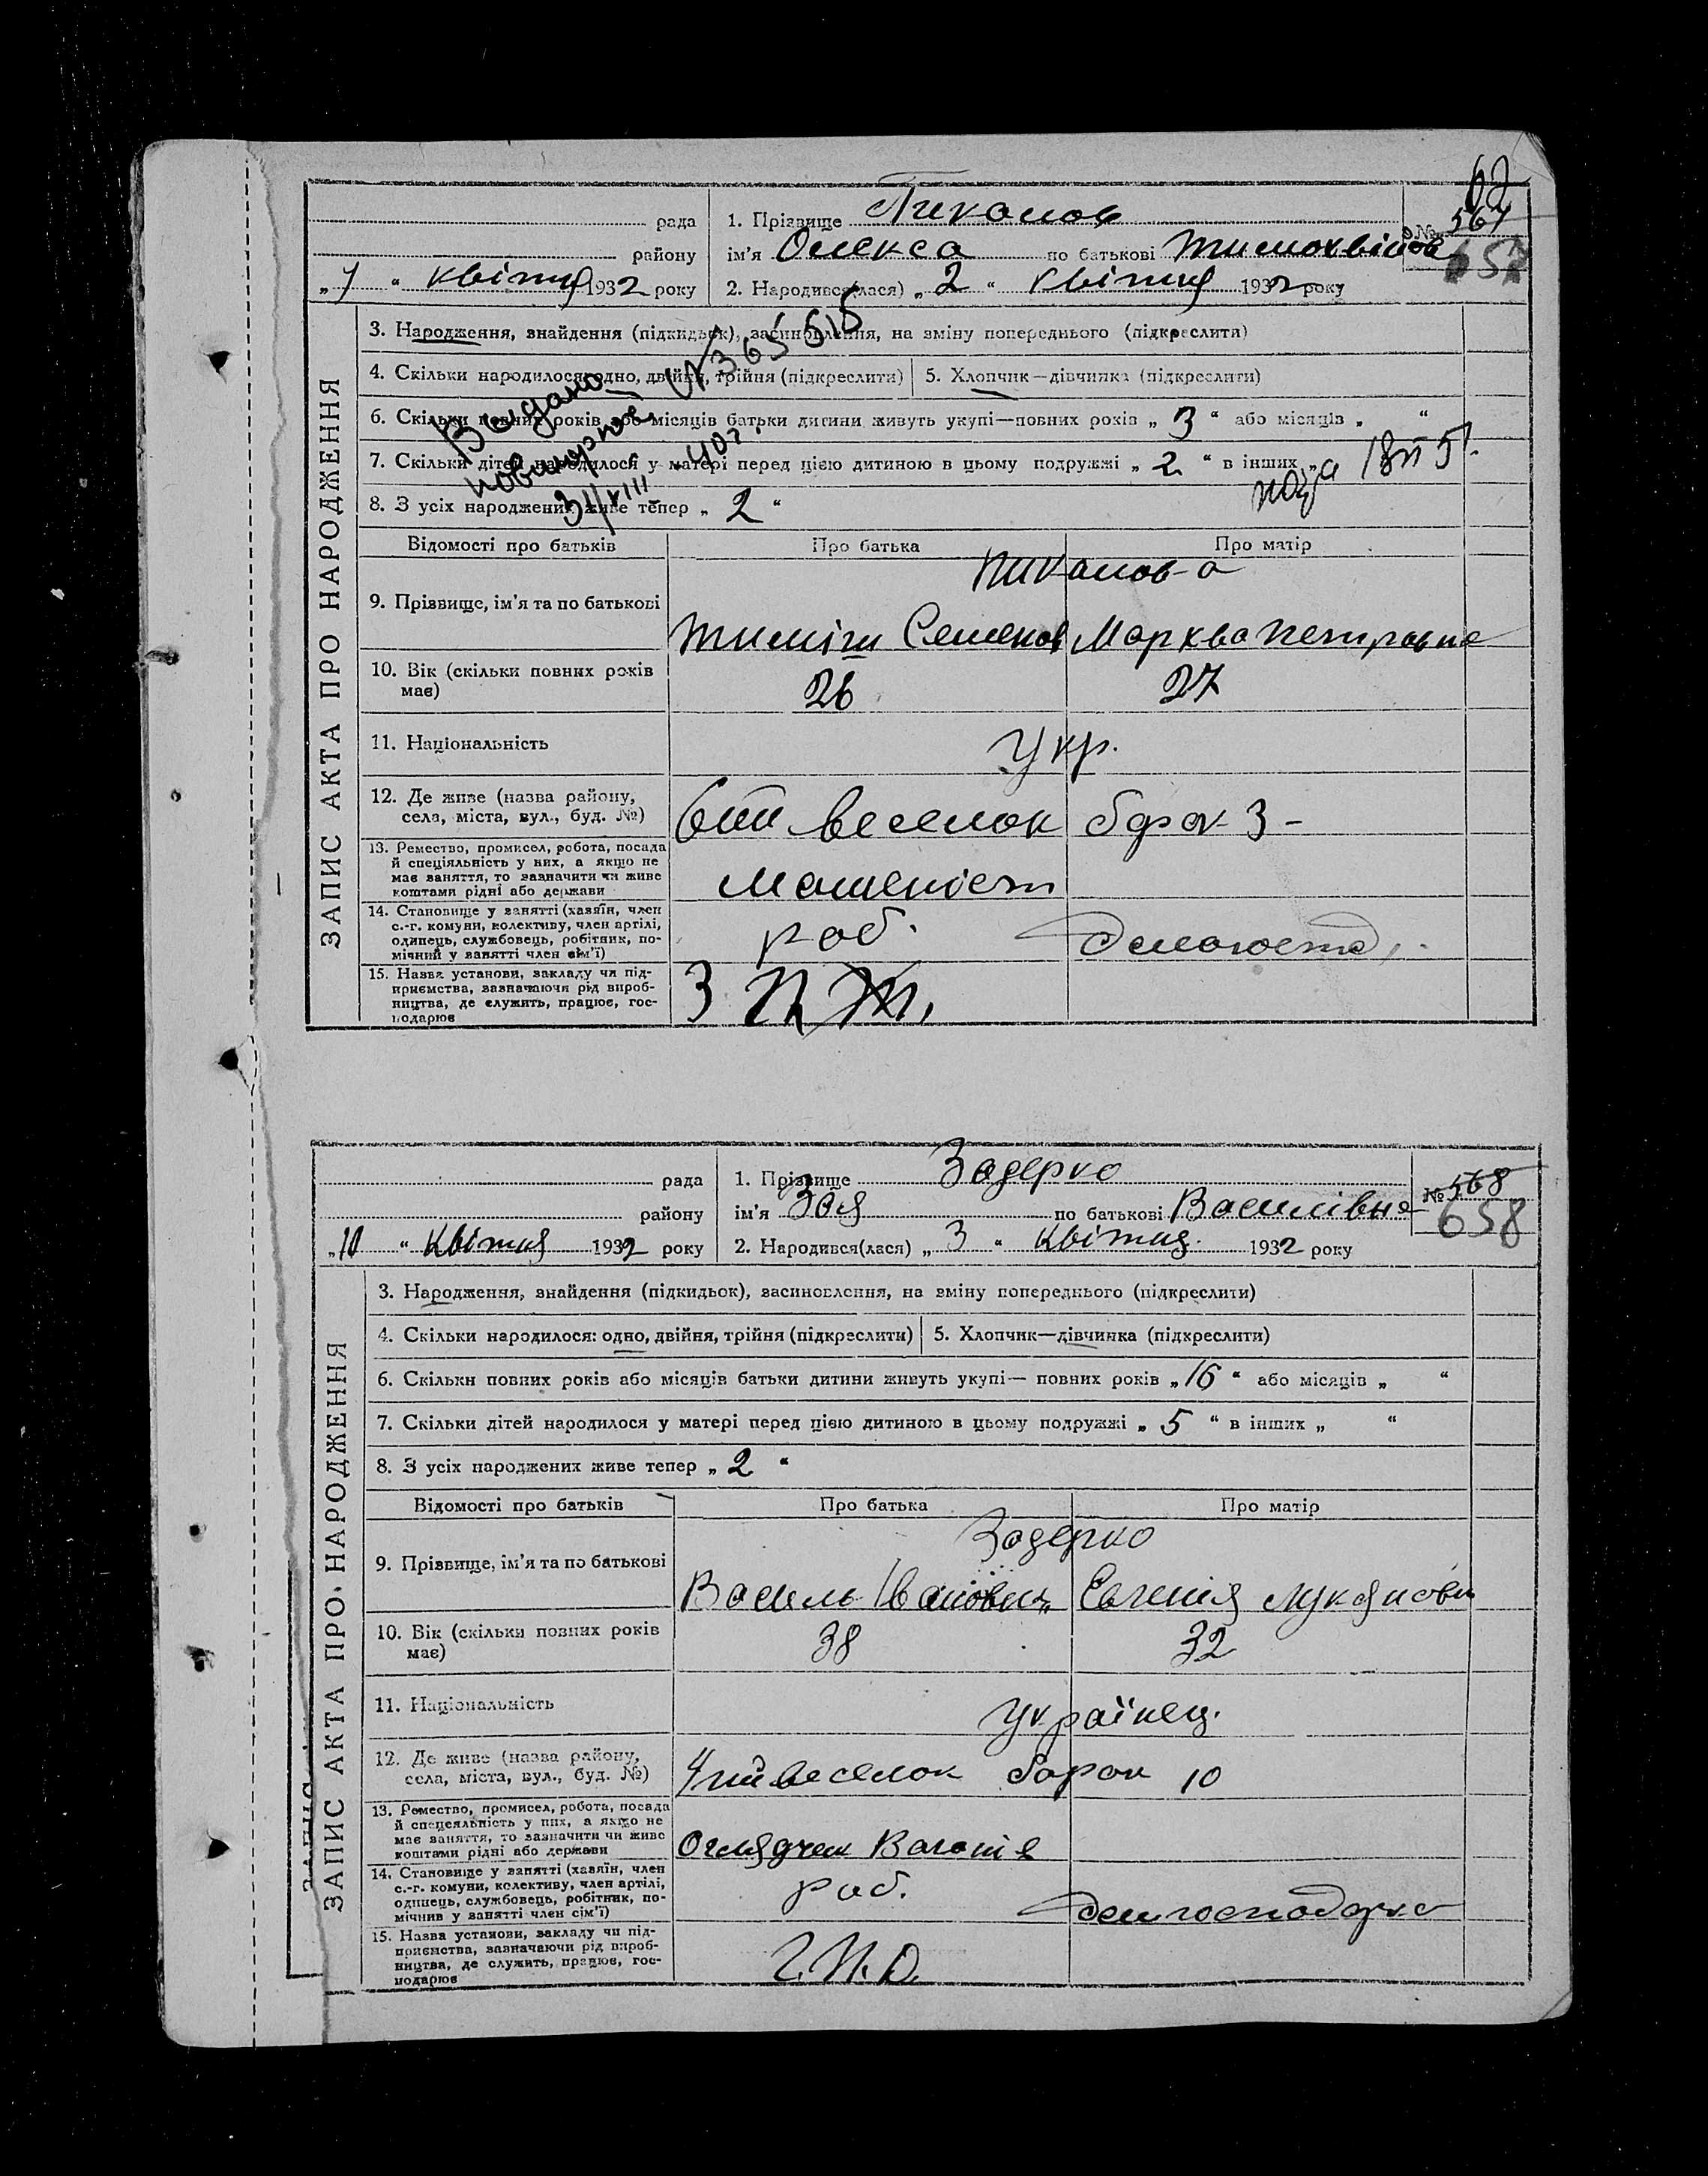 62
рада
1. Прізвище Пиканов
№ 567
району
ім'я Олекса по батькові Тимохвійов
657
„7“ квітня 1932 року
2. Народився(лася) „2“ квітня 1932 року
ЗАПИС АКТА ПРО НАРОДЖЕННЯ
3. Народження, знайдення (підкидьок), засиновлення, на зміну попереднього (підкреслити)
4. Скільки народилося: одно, двійня, трійня (підкреслити) 5. Хлопчик—дівчинка (підкреслити)
6. Скільки повних років або місяців батьки дитини живуть укупі—повних років „3“ або місяців „ “
7. Скільки дітей народилося у матері перед цією дитиною в цьому подружжі „2“ в інших „
8. З усіх народжених живе тепер „2“
Видано
повторное № 365615
31/VIII 40г.
18 П 51.
Відомості про батьків Про батька Про матір
Пиканов-а
9. Прізвище, ім'я та по батькові
Тиміш Семенов Марква Петровна
10. Вік (скільки повних років має)
26 27
11. Національність
Укр.
12. Де живе (назва району, села, міста, вул., буд. №)
6ти веселок барак 3-
13. Ремество, промисел, робота, посада й спеціяльність у них, а якщо не має заняття, то зазначити чи живе коштами рідні або держави
Машеніст
14. Становище у занятті (хазяїн, член с.-г. комуни, колективу, член артілі, одинець, службовець, робітник, помічний у занятті член сім'ї)
роб. домогосто.
15. Назва установи, закладу чи підприємства, зазначаючи рід виробництва, де служить, працює, господарює
З П Ж.
рада
1. Прізвище Задерко
№ 568
району
ім'я Зоя по батькові Василівна
658
„10“ Квітня 1932 року
2. Народився(лася) „3“ Квітня 1932 року
ЗАПИС АКТА ПРО НАРОДЖЕННЯ
3. Народження, знайдення (підкидьок), засиновлення, на зміну попереднього (підкреслити)
4. Скільки народилося: одно, двійня, трійня (підкреслити) 5. Хлопчик—дівчинка (підкреслити)
6. Скільки повних років або місяців батьки дитини живуть укупі— повних років „16“ або місяців „ “
7. Скільки дітей народилося у матері перед цією дитиною в цьому подружжі „5“ в інших „ “
8. З усіх народжених живе тепер „2“
Відомості про батьків Про батька Про матір
Задерко
9. Прізвище, ім'я та по батькові
Василь Іванович Евгенія Лукянови
10. Вік (скільки повних років має)
38 32
11. Національність
Українец.
12. Де живе (назва району, села, міста, вул., буд. №)
4тий веселок барак 10
13. Ремество, промисел, робота, посада й спецеяльність у них, а якщо не має заняття, то зазначити чи живе коштами рідні або держави
Оглядчик Вагонів
14. Становище у занятті (хазяїн, член с.-г. комуни, колективу, член артілі, одинець, службовець, робітник, помічнив у занятті член сім'ї)
роб. домгосподарка
15. Назва установи, закладу чи підприємства, зазначаючи рід виробництва, де служить, працює, господарює